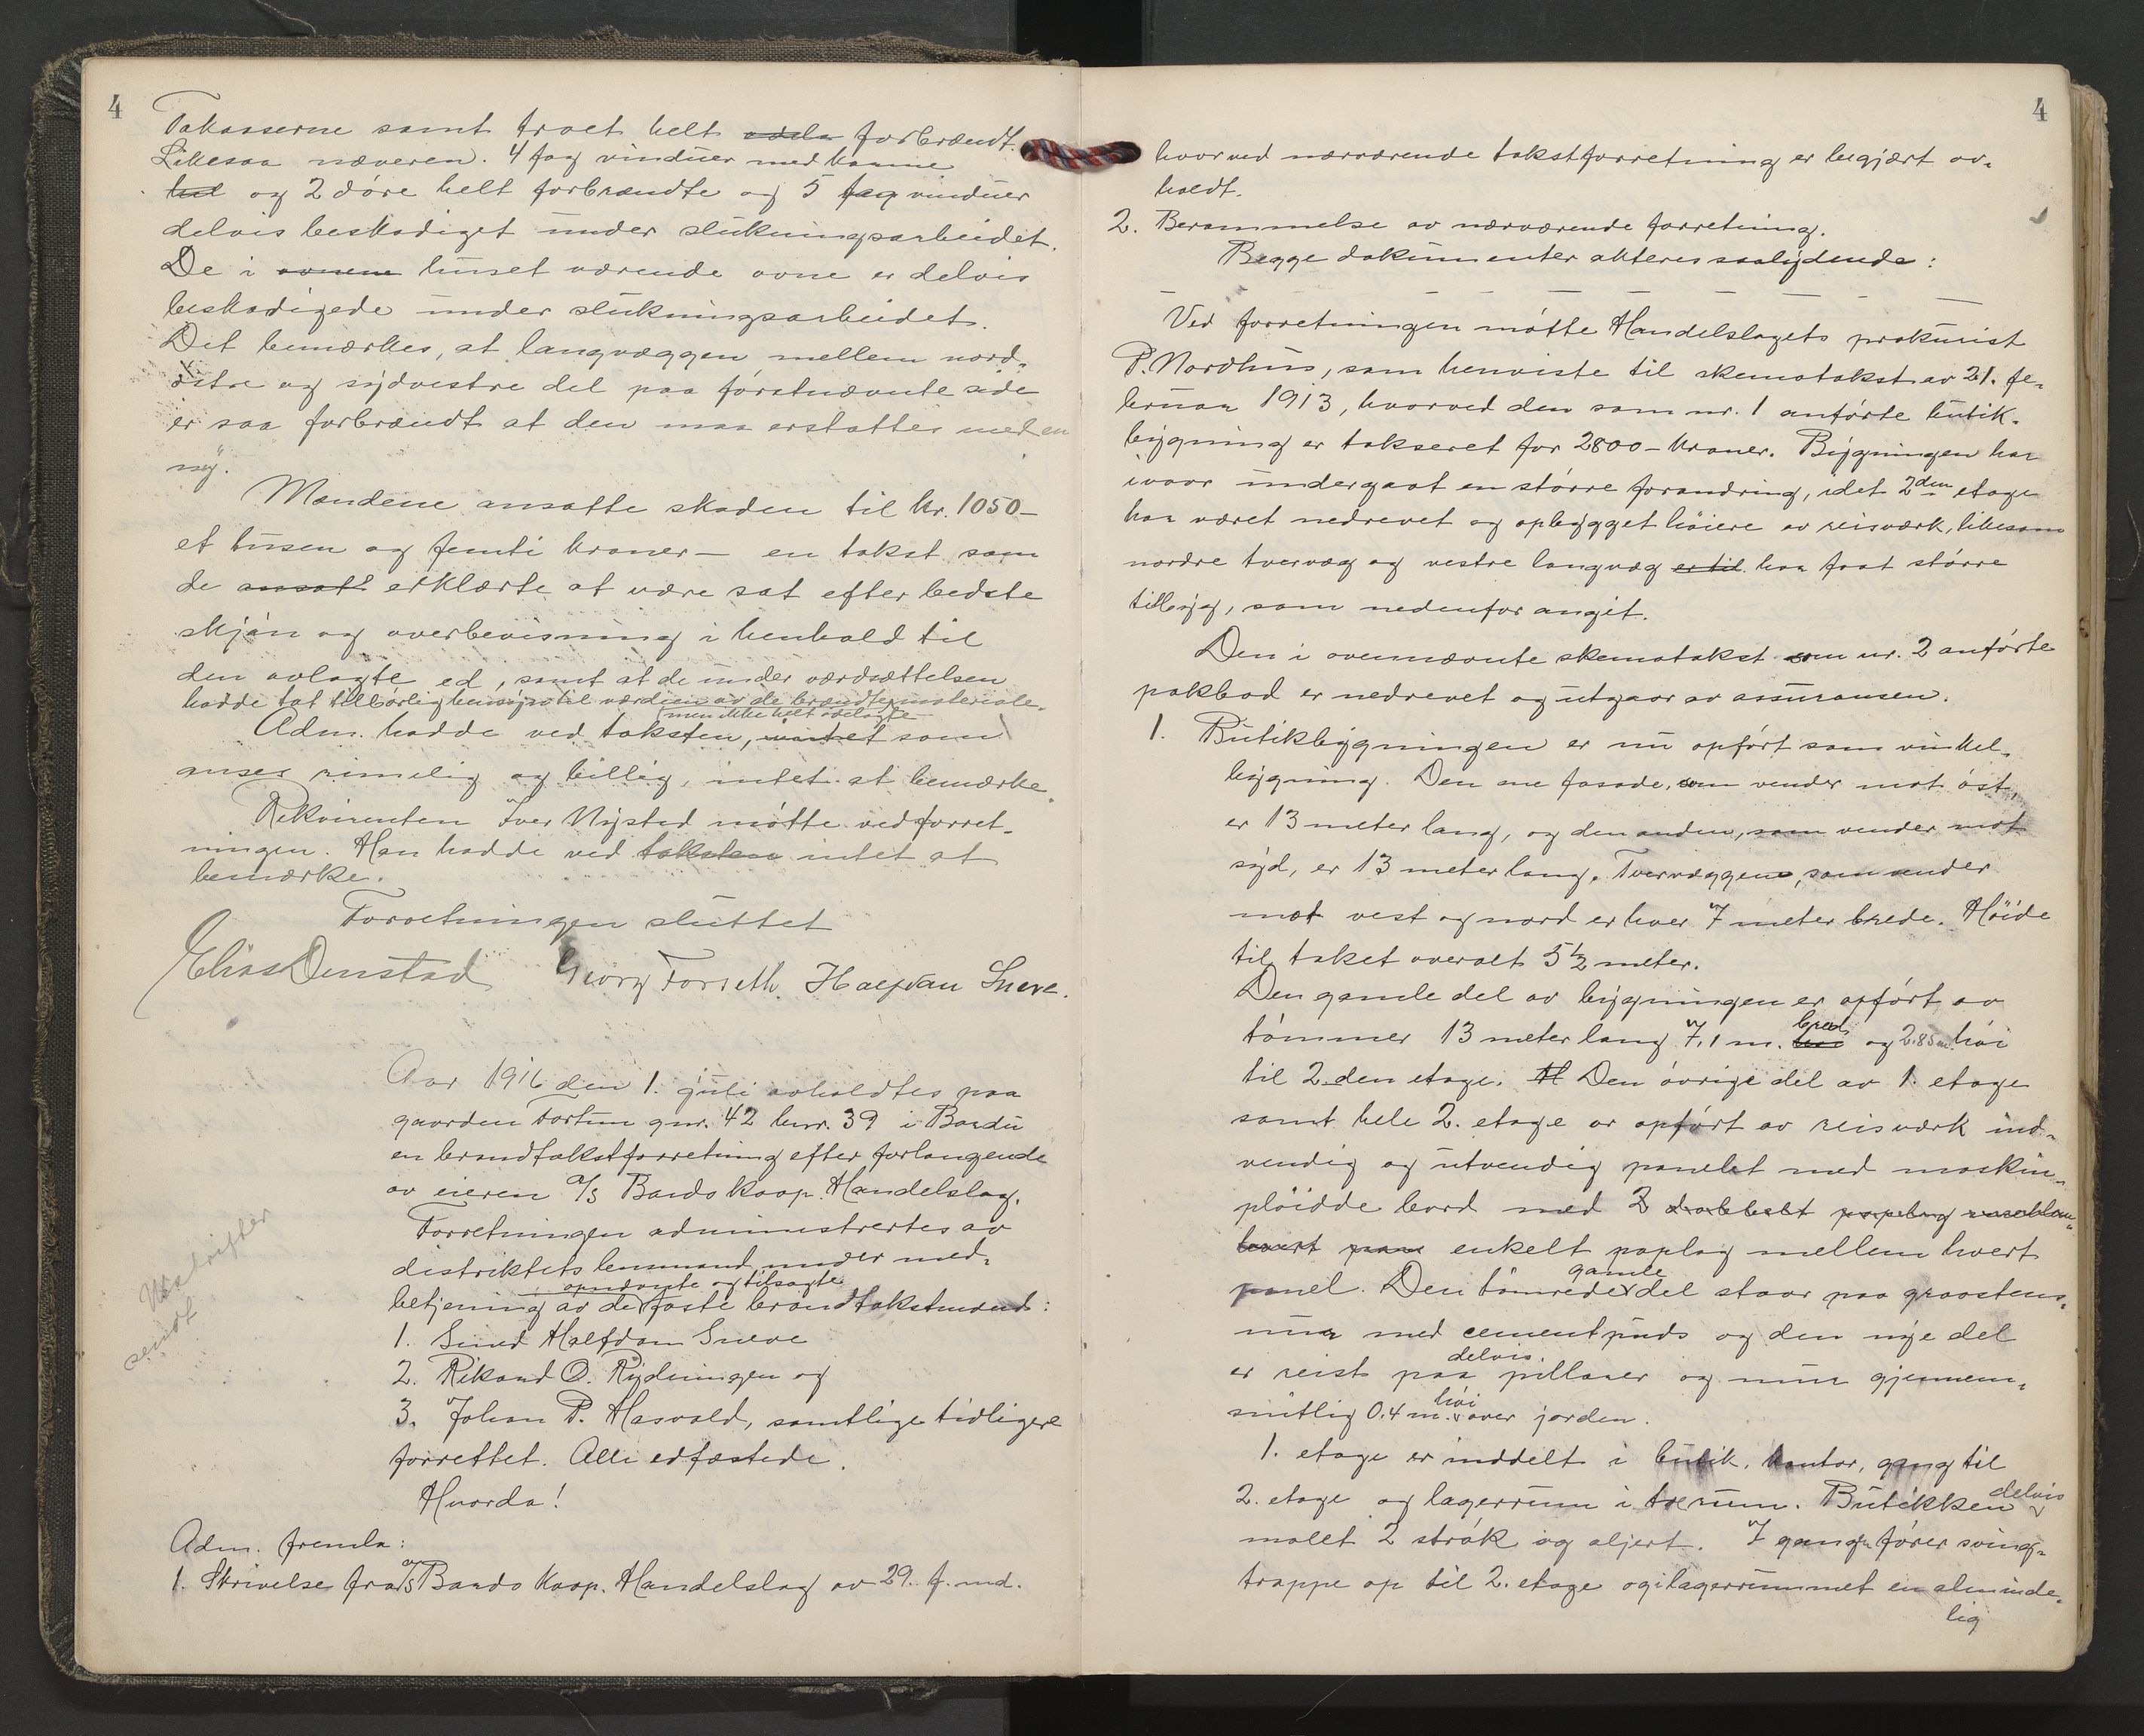 4
Takaaserne samt troet helt odela forbrændt.
Likesaa næveren. 4 fag vinduer med karme
hel og 2 døre helt forbrændte og 5 fag vinduer
delvis beskadiget under slukningsarbeidet.
De i ovnene huset værende ovne er delvis
beskadigede under slukningsarbeidet.
Det bemærkes, at langvæggen mellem nord-
østre og sydvestre del paa førstnævnte side
er saa forbrændt at den maa erstattes med en
ny.
Mændene ansatte skaden til kr. 1050–
et tusen og femti kroner – en takst som
de ansatt erklærte at være sat efter bedste
skjøn og overbevisning i henhold til
den avlagte ed, samt at de under værdsættelsen
hadde tat tilbørlig hensyn til værdien av de brændte materiale.
men ikke helt ødelagte
Adm. hadde ved taksten, intet som
anses rimelig og billig, intet at bemærke.
Rekvirenten Iver Nysted møtte ved forret-
ningen. Han hadde ved taksten intet at
bemærke.
Forretningen sluttet
Elias Denstad Georg Forseth. Halfdan Sneve.
Aar 1916 den 1. juli avholdtes paa
gaarden Fortun gnr. 42 bnr. 39 i Bardu
en brandtakstforretning efter forlangende
av eieren A/S Bardo Koop. Handelslag.
Forretningen administrertes av
distriktets lensmand under med-
opnævnte og tilsagte
betjening av de faste brandtakstmænd:
1. Smed Halfdan Sneve
2. Rikard O. Rydningen og
3. Johan P. Hasvold, samtlige tidligere
forrettet. Alle edfæstede.
Hvorda!
Utskrifter
sendt
Adm. fremla:
1. Skrivelse fra A/S Bardo Koop. Handelslag av 29. f. md.
4
hvorved nærværende takstforretning er begjært av-
holdt.
2. Berammelse av nærværende forretning.
Begge dokumenter akteres saalydende:
— — — — — — —
Ved forretningen møtte Handelslagets prokurist
P. Nordhus, som henviste til skematakst av 21. fe-
bruar 1913, hvorved den som nr. 1 anførte butik-
bygning er taksert for 2800– kroner. Bygningen har
ivaar undergaat en større forandring, idet 2den etage
har været nedrevet og opbygget høiere av reisværk, likesom
nordre tvervæg og vestre langvæg er til har faat større
tilbygg, som nedenfor angit.
Den i ovennævnte skematakst som nr. 2 anførte
pakbod er nedrevet og utgaar av assuransen.
1. Butikbygningen er nu opført som vinkel-
bygning. Den ene fasade, som vender mot øst,
er 13 meter lang, og den anden, som vender mot
syd, er 13 meter lang. Tvervæggene, som vender
mot vest og nord er hver 7 meter brede. Høide
til taket overalt 5½ meter.
Den gamle del av bygningen er opført av
bred
tømmer 13 meter lang 7,1 m. høi og 2.85 m. høi
til 2den etage. H Den øvrige del av 1. etage
samt hele 2. etage er opført av reisværk ind-
vendig og utvendig panelet med maskin-
pløidde bord med 2 dobbelt paplag mellem
hvert pane enkelt paplag mellem hvert
gamle
panel. Den tømrede del staar paa graastens-
mur med cementpuds og den nye del
delvis
er reist paa pillarer og mur gjennem-
høi
snitlig 0.4 m. over jorden.
1. etage er inddelt i butik, kontor, gang til
delvis
2. etage og lagerrum i tre rum. Butikken
malet 2 strøk og oljert. I gangen fører sving-
trappe op til 2. etage og i lagerrummet en alminde-
lig